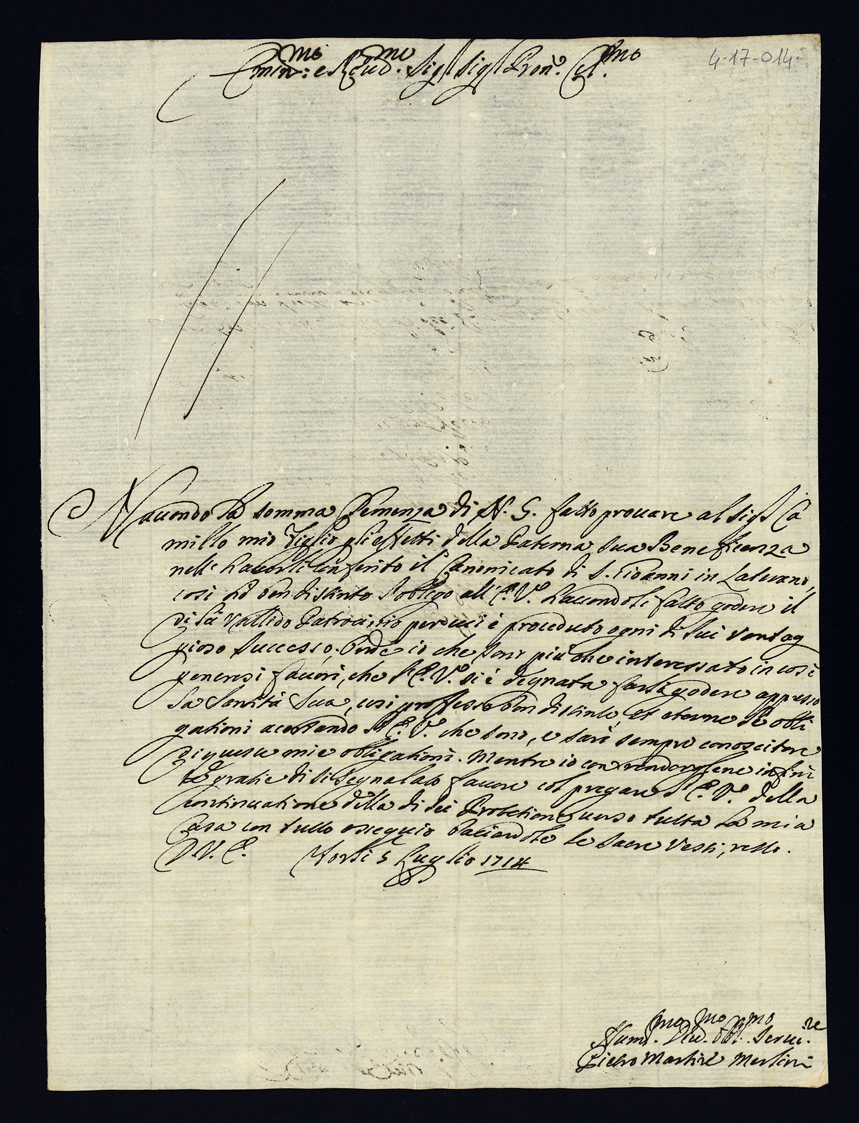 4-17-014
Emin:mo e Reud.mo Sig.r Sig.r Pron.e Col.mo
Hauendo la somma Clemenza di N. S. fatto prouare al Sig.r Ca
millo mio Figlio gli effetti della Paterna sua Beneficenza
nell' hauerli Conferito il Canonicato di S. Giouanni in Laterano,
cosi hò ben distinto l'obligo all' E. V. hauendoli fatto godere il
di Lei Valido Patrocinio per cui è proceduto ogni di lui Vantag
gioso Successo, Onde io che sono più che interessato in così
generosi fauori, che l' E. V. si è degnata farli godere appresso
la Santità Sua, cosi professo ben distinte, et eterne le obli
gationi accertando l' E. V. che sono, e sarò sempre conoscitore
di queste mie obligationi. Mentre io con rendergliene infini
te gratie di si segnalato fauore col pregare l' E. V. della
Continuatione della di Lei Protettione verso tutta la mia
Casa con tutto ossequio baciandole le Sacre Vesti, resto.
D. V. E. Forlì 5 Luglio 1714
Hum.mo Diu.mo Obl.mo Seruu.re
Pietro Martire Merlini